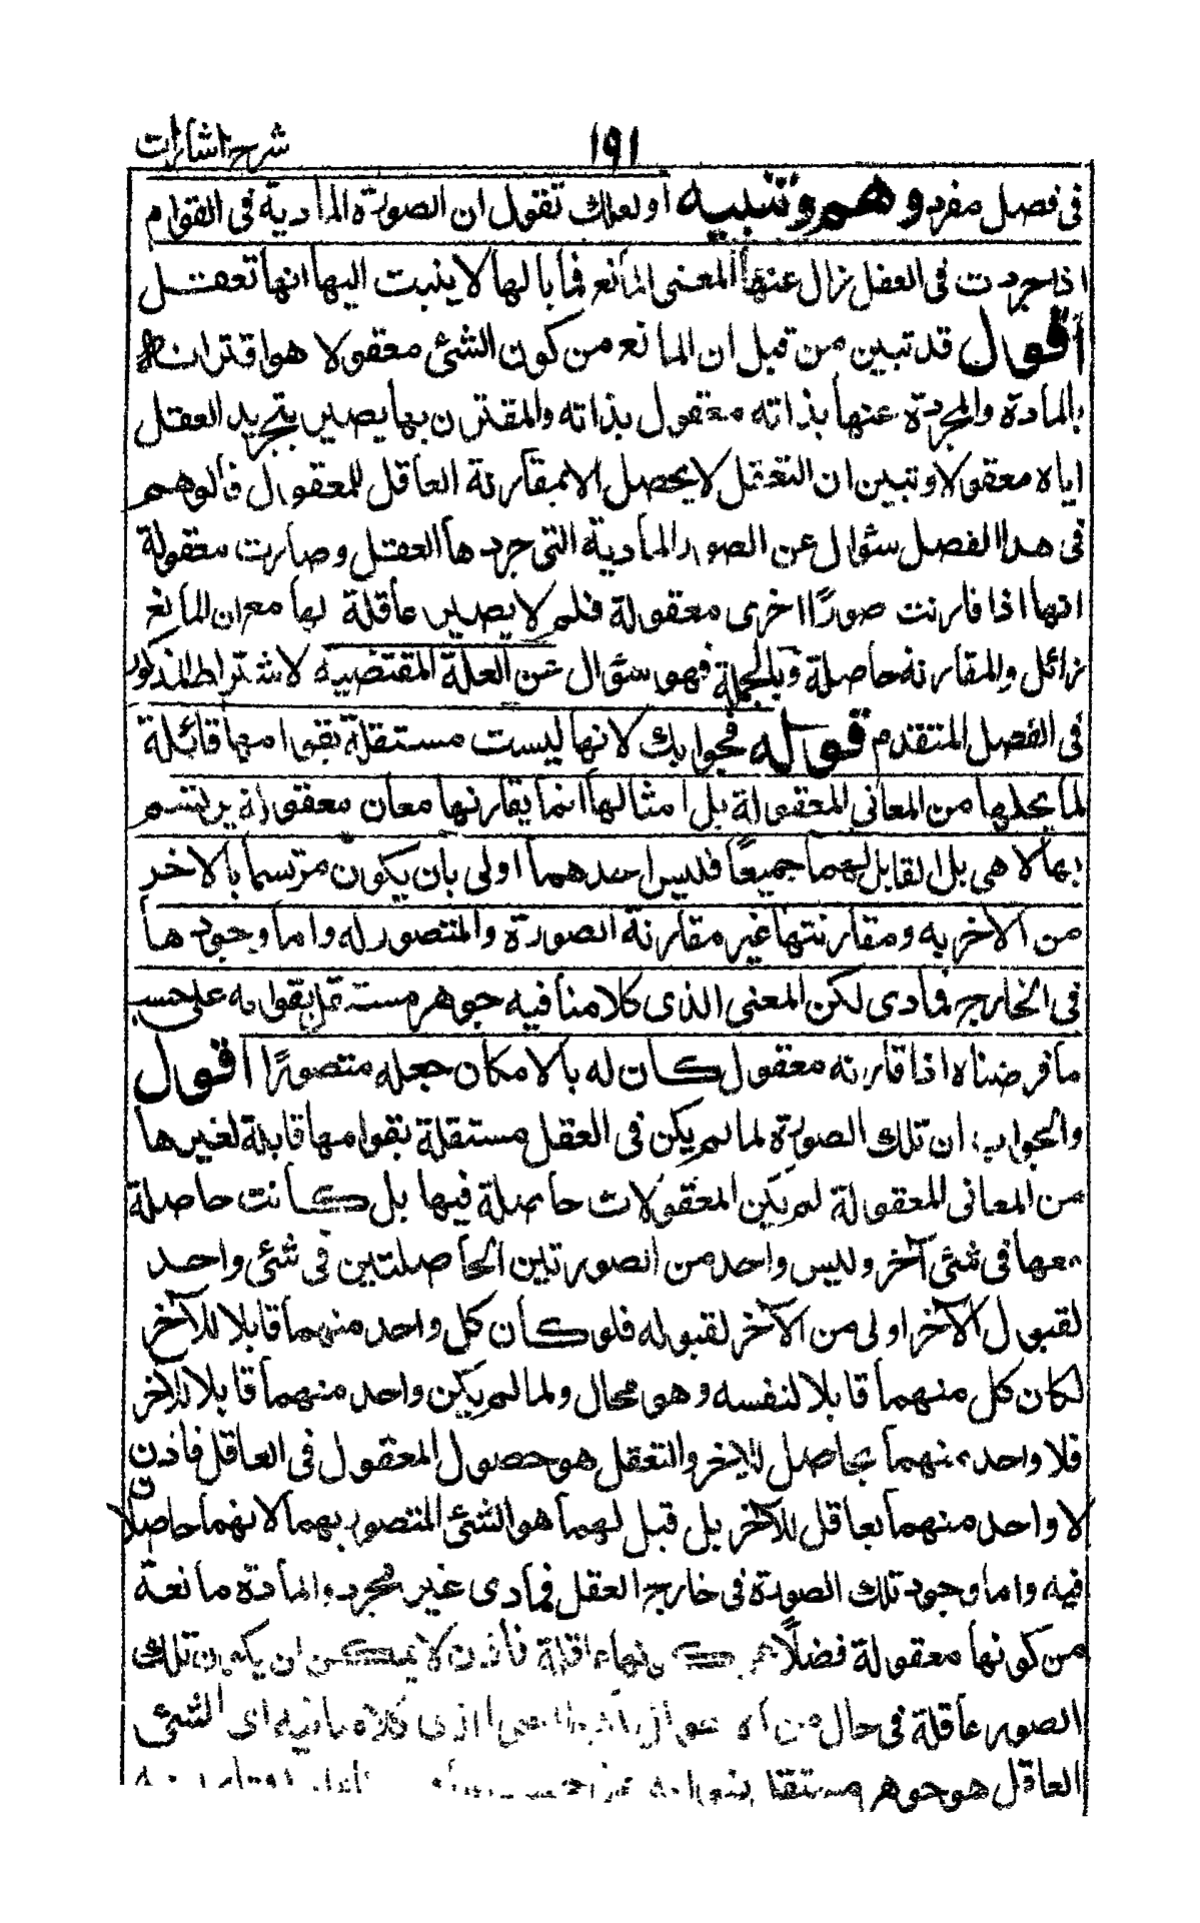 شرح اشارات
١٩١
فی فصل مفرد وهم وتنبيه او لعلك تقول ان الصورة المادية فی القوام
اذا جردت فی العقل زال عنها المعنی المانع فما بالها لا ينسب اليها انها تعقل
اقول قد تبين من قبل ان المانع من كون الشئ معقولا هو اقترانه
بالمادة والمجردة عنها بذاته معقول بذاته والمقترن بها يصير بتجريد العقل
اياه معقولا وتبين ان التعقل لا يحصل الا بمقارنة العاقل للمعقول فالوهم
فی هذا الفصل سؤال عن الصور المادية التی جردها العقل وصارت معقولة
انها اذا قارنت صورًا اخری معقولة فلم لا يصير عاقلة لها مع ان المانع
زائل والمقارنة حاصلة وبالجملة فهو سؤال عن العلة المقتضية لاشتراط المذكور
فی الفصل المتقدم قوله فجوابك لانها ليست مستقلة بقوامها قابلة
لما يحلها من المعانی المعقولة بل امثالها انما يقارنها معان معقولة يرتسم
بها لا هی بل القابل لهما جميعًا فليس احدهما اولی بان يكون مرتسما بالاخر
من الاخر به ومقارنتها غير مقارنة الصورة والمتصور له واما وجودها
فی الخارج فمادی لكن المعنی الذی كلامنا فيه جوهر مستقل بقوامه علی حسب
ما فرضناه اذا قارنه معقول كان له بالامكان جعله متصورًا اقول
والجواب ان تلك الصورة لما لم يكن فی العقل مستقلة بقوامها قابلة لغيرها
من المعانی المعقولة لم يكن المعقولات حاصلة فيها بل كانت حاصلة
معها فی شئ آخر وليس واحد من الصورتين الحاصلتين فی شئ واحد
لقبول الآخر اولی من الآخر لقبوله فلو كان كل واحد منهما قابلا للآخر
لكان كل منهما قابلا لنفسه وهو محال ولما لم يكن واحد منهما قابلا للآخر
فلا واحد منهما بحاصل للآخر والتعقل هو حصول المعقول فی العاقل فاذن
لا واحد منهما بعاقل للآخر بل قبل لهما هو الشئ المتصور بهما لانهما حاصلان
فيه واما وجود تلك الصورة فی خارج العقل فمادی غير مجرد والمادة مانعة
من كونها معقولة فضلًا من كونها عاقلة فاذن لا يمكن ان يكون تلك
الصور عاقلة فی حال من الاحوال الذی كلامنا فيه ای الشئ
العاقل هو جوهر مستقل بقوامه